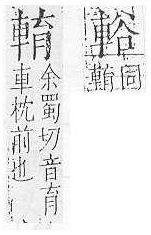 輍
同
余蜀切音育
車枕前也